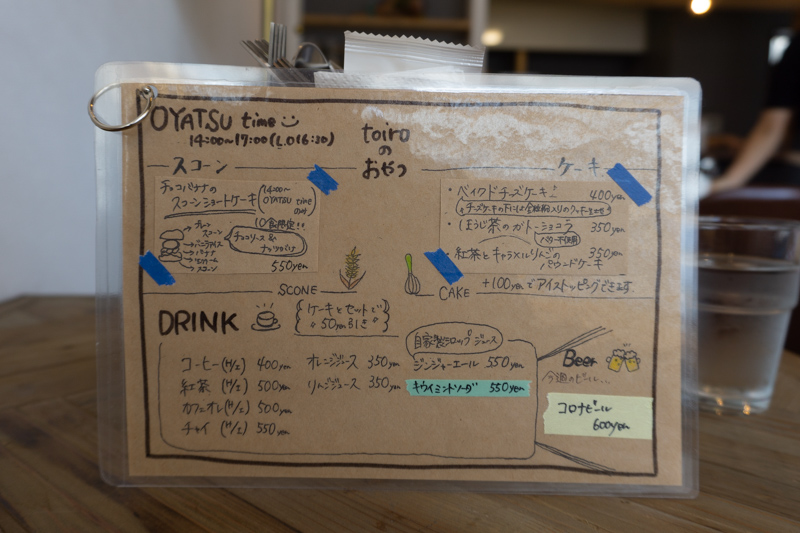 OYATSU time
14:00〜17:00(L.O16:30)
toiro
の
おやつ
スコーン
チョコバナナの
スコーンショートケーキ
(14:00〜
OYATSU time
のみ)
10食限定!!
チョコソース&
ナッツつき
プレーン
スコーン
バニラアイス
バナナ
生クリーム
スコーン
550yen
SCONE
ケーキ
・ベイクドチーズケーキ 400yen
・ほうじ茶のガトーショコラ 350yen
・紅茶とキャラメルりんごの
パウンドケーキ 350yen
CAKE
+100yenでアイストッピングできます
DRINK
ケーキとセットで
50yen引き
コーヒー (H/I) 400yen
紅茶 (H/I) 500yen
カフェオレ (H/I) 500yen
チャイ (H/I) 550yen
オレンジジュース 350yen
りんごジュース 350yen
自家製シロップジュース
ジンジャーエール 550yen
キウイミントソーダ 550yen
Beer
今週のビール...
コロナビール
600yen